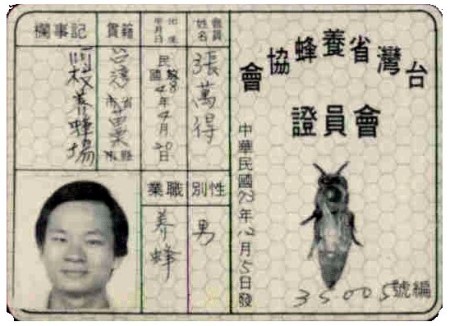 台灣省養蜂協會
會員證
編號 35005
中華民國72年12月5日發
會員姓名
張萬得
出生年月日
民國4年4月20日
籍貫
台灣省苗栗縣市
記事欄
養蜂場
性別
男
職業
養蜂